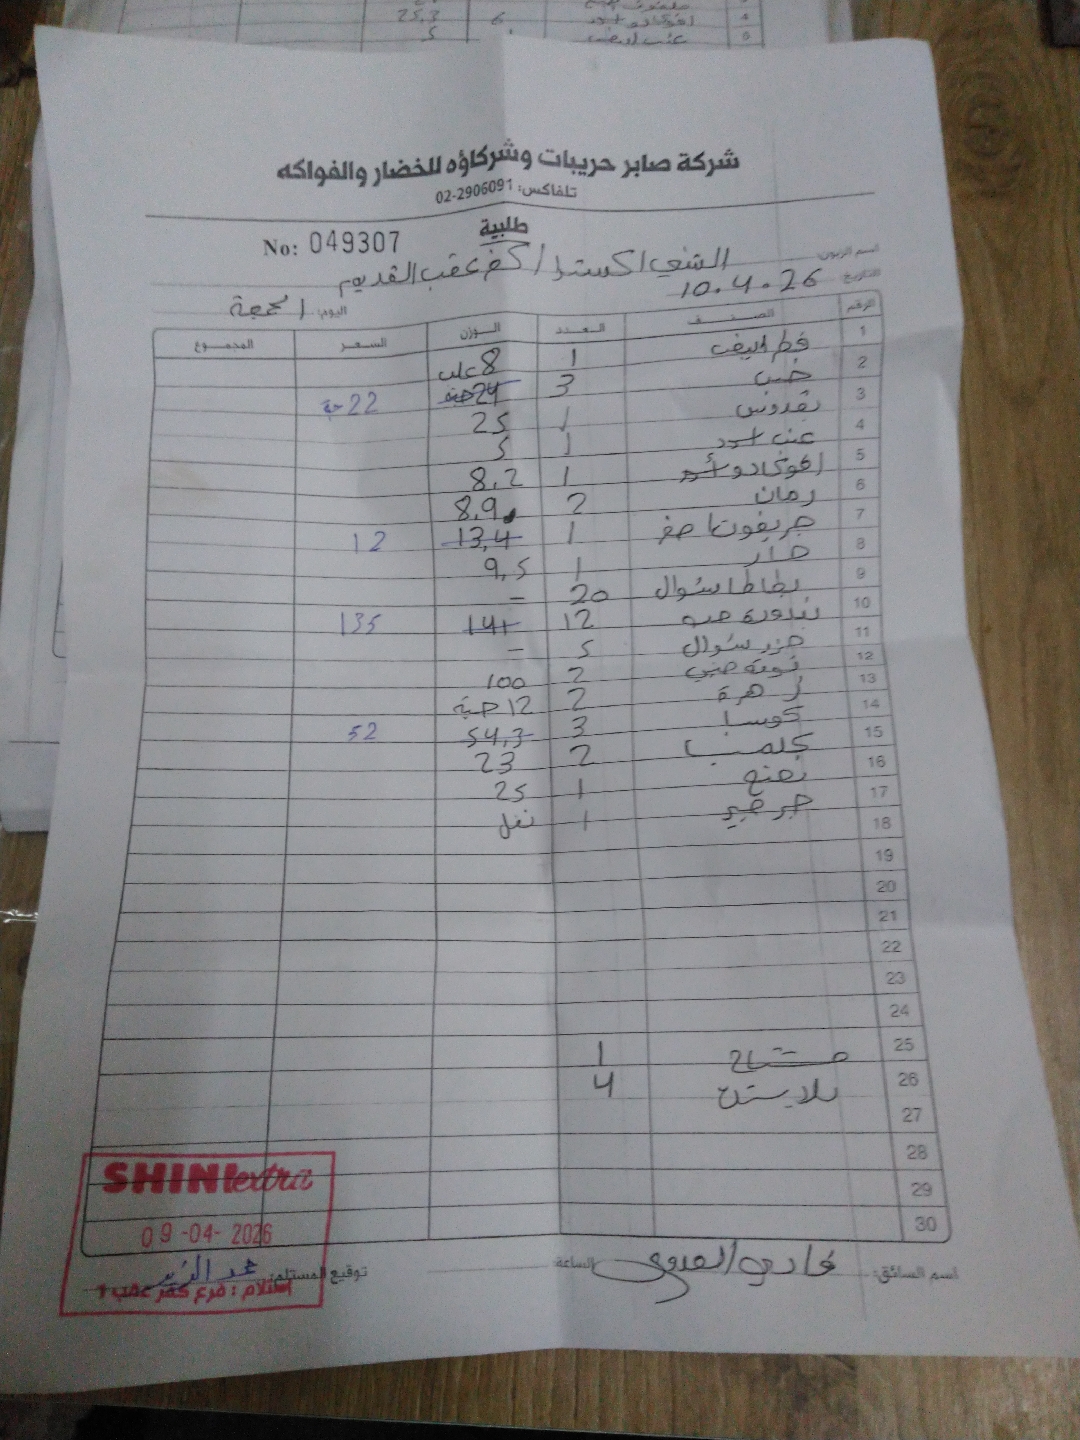 شركة صابر حريبات وشركاؤه للخضار والفواكه
تلفاكس: 02-2906091
طلبية
No: 049307
اسم الزبون: الشني اكسترا / كفر عقب القديم
التاريخ: 10.4.26
اليوم: الجمعة
الرقم الصنف العدد الوزن السعر المجموع
1 فطر 1 8 علب
2 خس 3 24 حبة 22 حبة
3 بقدونس 1 25
4 عنب اسود 1 5
5 افوكادو 1 8,2
6 رمان 2 8,9
7 جريفوت احمر 1 13,4 12
8 خيار 1 9,5
9 بطاطا شوال 20 –
10 بندورة 12 141 135
11 جزر شوال 5 –
12 2 100
13 زهرة 2 12 حبة
14 كوسا 3 54,3 52
15 2 23
16 نعنع 1 25
17 جرجير 1
18
19
20
21
22
23
24
25 مشتاح 1
26 بلاستيك 4
27
28
29
30
SHINI extra
09-04-2026
استلام : فرع كفر عقب 1
اسم السائق:
الساعة:
توقيع المستلم: